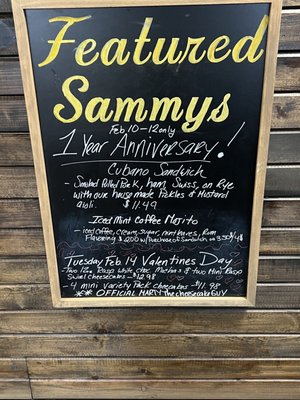 Featured
Sammys
Feb 10-12 only
1 Year Anniversary!
Cubano Sandwich
- Smoked Pulled Pork, ham, Swiss, on Rye
with our house made Pickles & Mustard
aioli. $11.49
Iced Mint Coffee Mojito
- iced Coffee, Cream, Sugar, mint leaves, Rum
Flavoring $2.00 w/Purchase of Sandwich or 3.50/4.98
Tuesday Feb. 14 Valentines Day
Two 12oz Rasp White Choc Mochas & two Mini Rasp
Swirl Cheesecakes - $12.98
- 4 mini Variety Pack Cheesecakes - $11.98
OFFICIAL thecheesecakeGUY